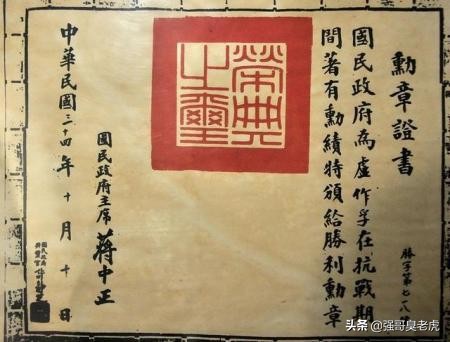 勳章證書
國民政府為盧作孚在抗戰期
間著有勳績特頒給勝利勳章
勝字第七一八
榮典之璽
國民政府主席 蔣中正
中華民國三十四年十月十日
頭条 @强哥臭老虎